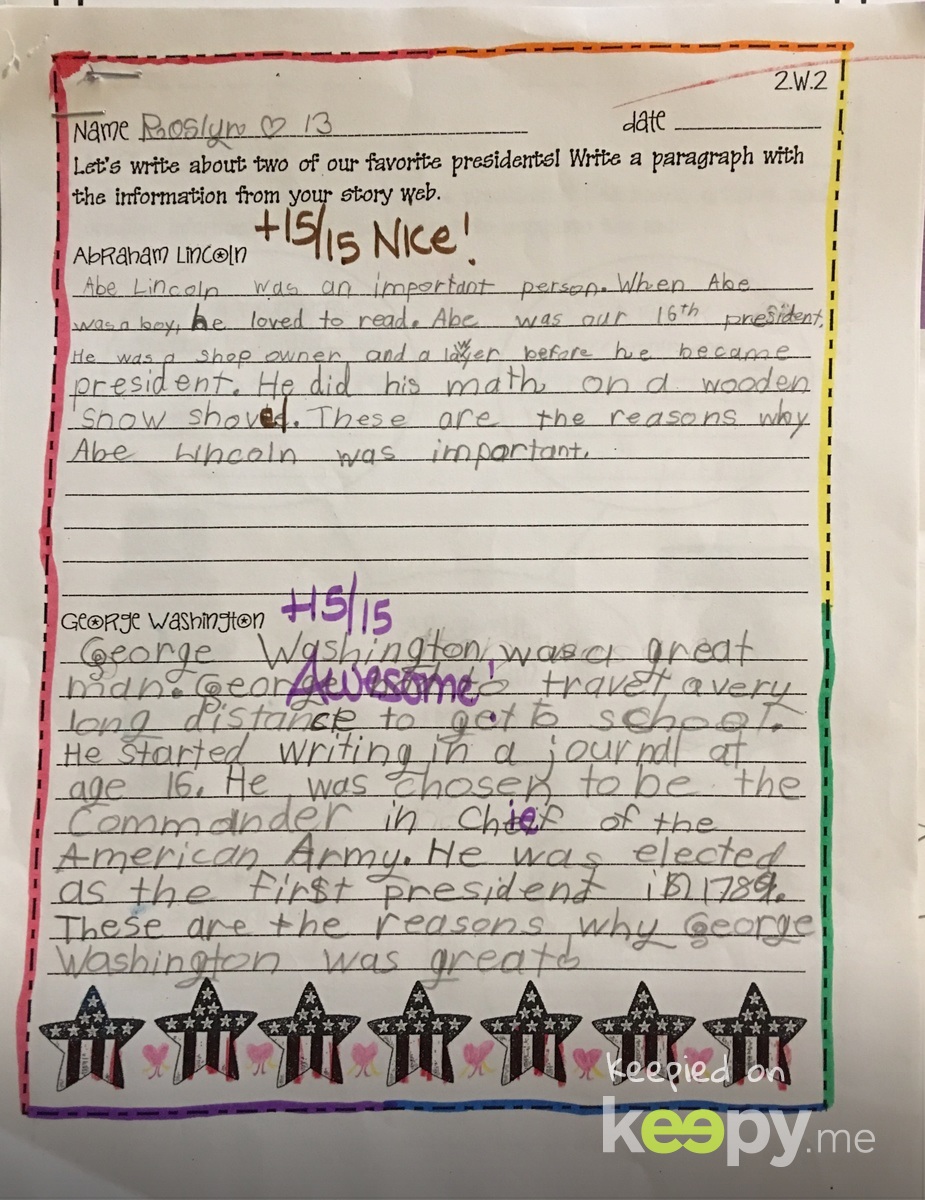 2.W.2
Name Roslyn ♡ 13 date
Let's write about two of our favorite presidents! Write a paragraph with
the information from your story web.
+15/15 Nice!
Abraham Lincoln
Abe Lincoln was an important person. When Abe
was a boy, he loved to read. Abe was our 16th president.
He was a shop owner and a lawyer before he became
president. He did his math on a wooden
snow shovel. These are the reasons why
Abe Lincoln was important.
George Washington +15/15
George Washington was a great
Awesome!
man. George to travel a very
long distance to get to school.
He started writing in a journal at
age 16. He was chosen to be the
Commander in Chief of the
American Army. He was elected
as the first president in 1789.
These are the reasons why George
Washington was great
keepied on
keepy.me